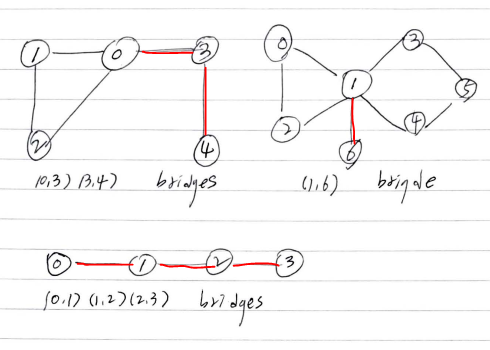 1 0 3
2 4
(0,3) (3,4) bridges
0 3
1 5
2 4
6
(1,6) brigde
0 1 2 3
(0,1) (1,2) (2,3) bridges